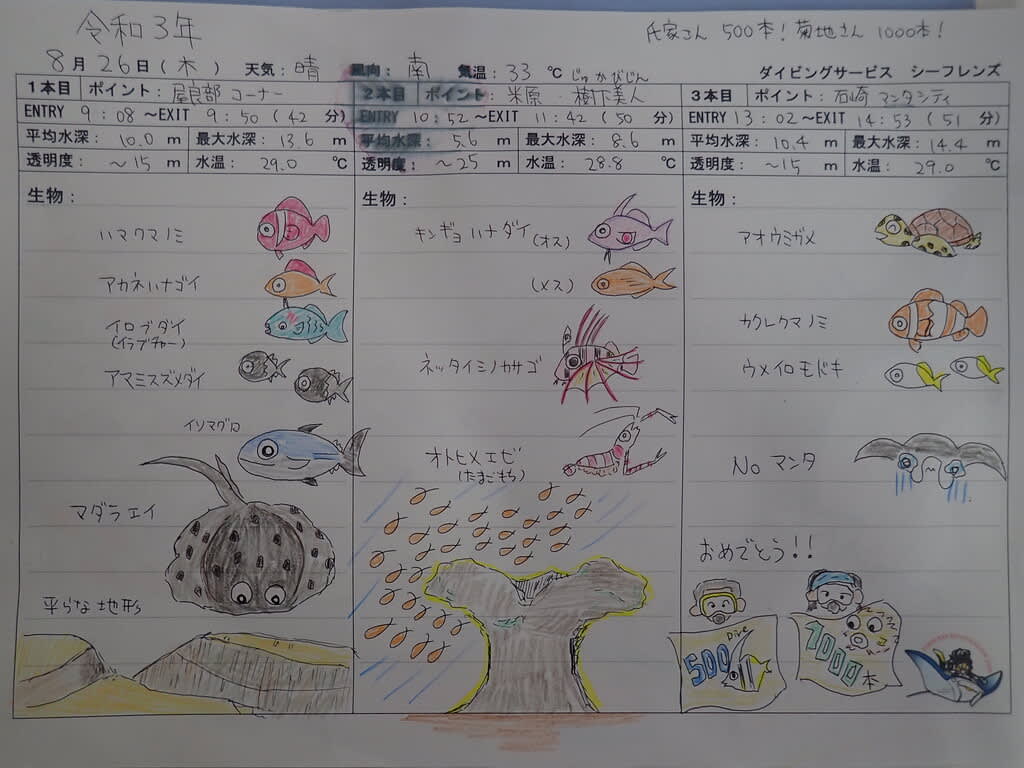 令和3年
氏家さん 500本! 菊地さん 1000本!
8月26日(木) 天気:晴 風向:南 気温:33℃ じゅかびじん ダイビングサービス シーフレンズ
1本目 ポイント:屋良部コーナー
ENTRY 9:08~EXIT 9:50(42分)
平均水深:10.0m 最大水深:13.6m
透明度:~15m 水温:29.0℃
生物:
ハマクマノミ
アカネハナゴイ
イロブダイ
(イラブチャー)
アマミスズメダイ
イソマグロ
マダラエイ
平らな地形
2本目 ポイント:米原:樹下美人
ENTRY 10:52~EXIT 11:42(50分)
平均水深:5.6m 最大水深:8.6m
透明度:~25m 水温:28.8℃
生物:
キンギョハナダイ(オス)
(メス)
ネッタイミノカサゴ
オトヒメエビ
(たまごもち)
3本目 ポイント:石崎マンタシティ
ENTRY 13:02~EXIT 14:53(51分)
平均水深:10.4m 最大水深:14.4m
透明度:~15m 水温:29.0℃
生物:
アオウミガメ
カクレクマノミ
ウメイロモドキ
No マンタ
おめでとう!!
Dive
500
1000本